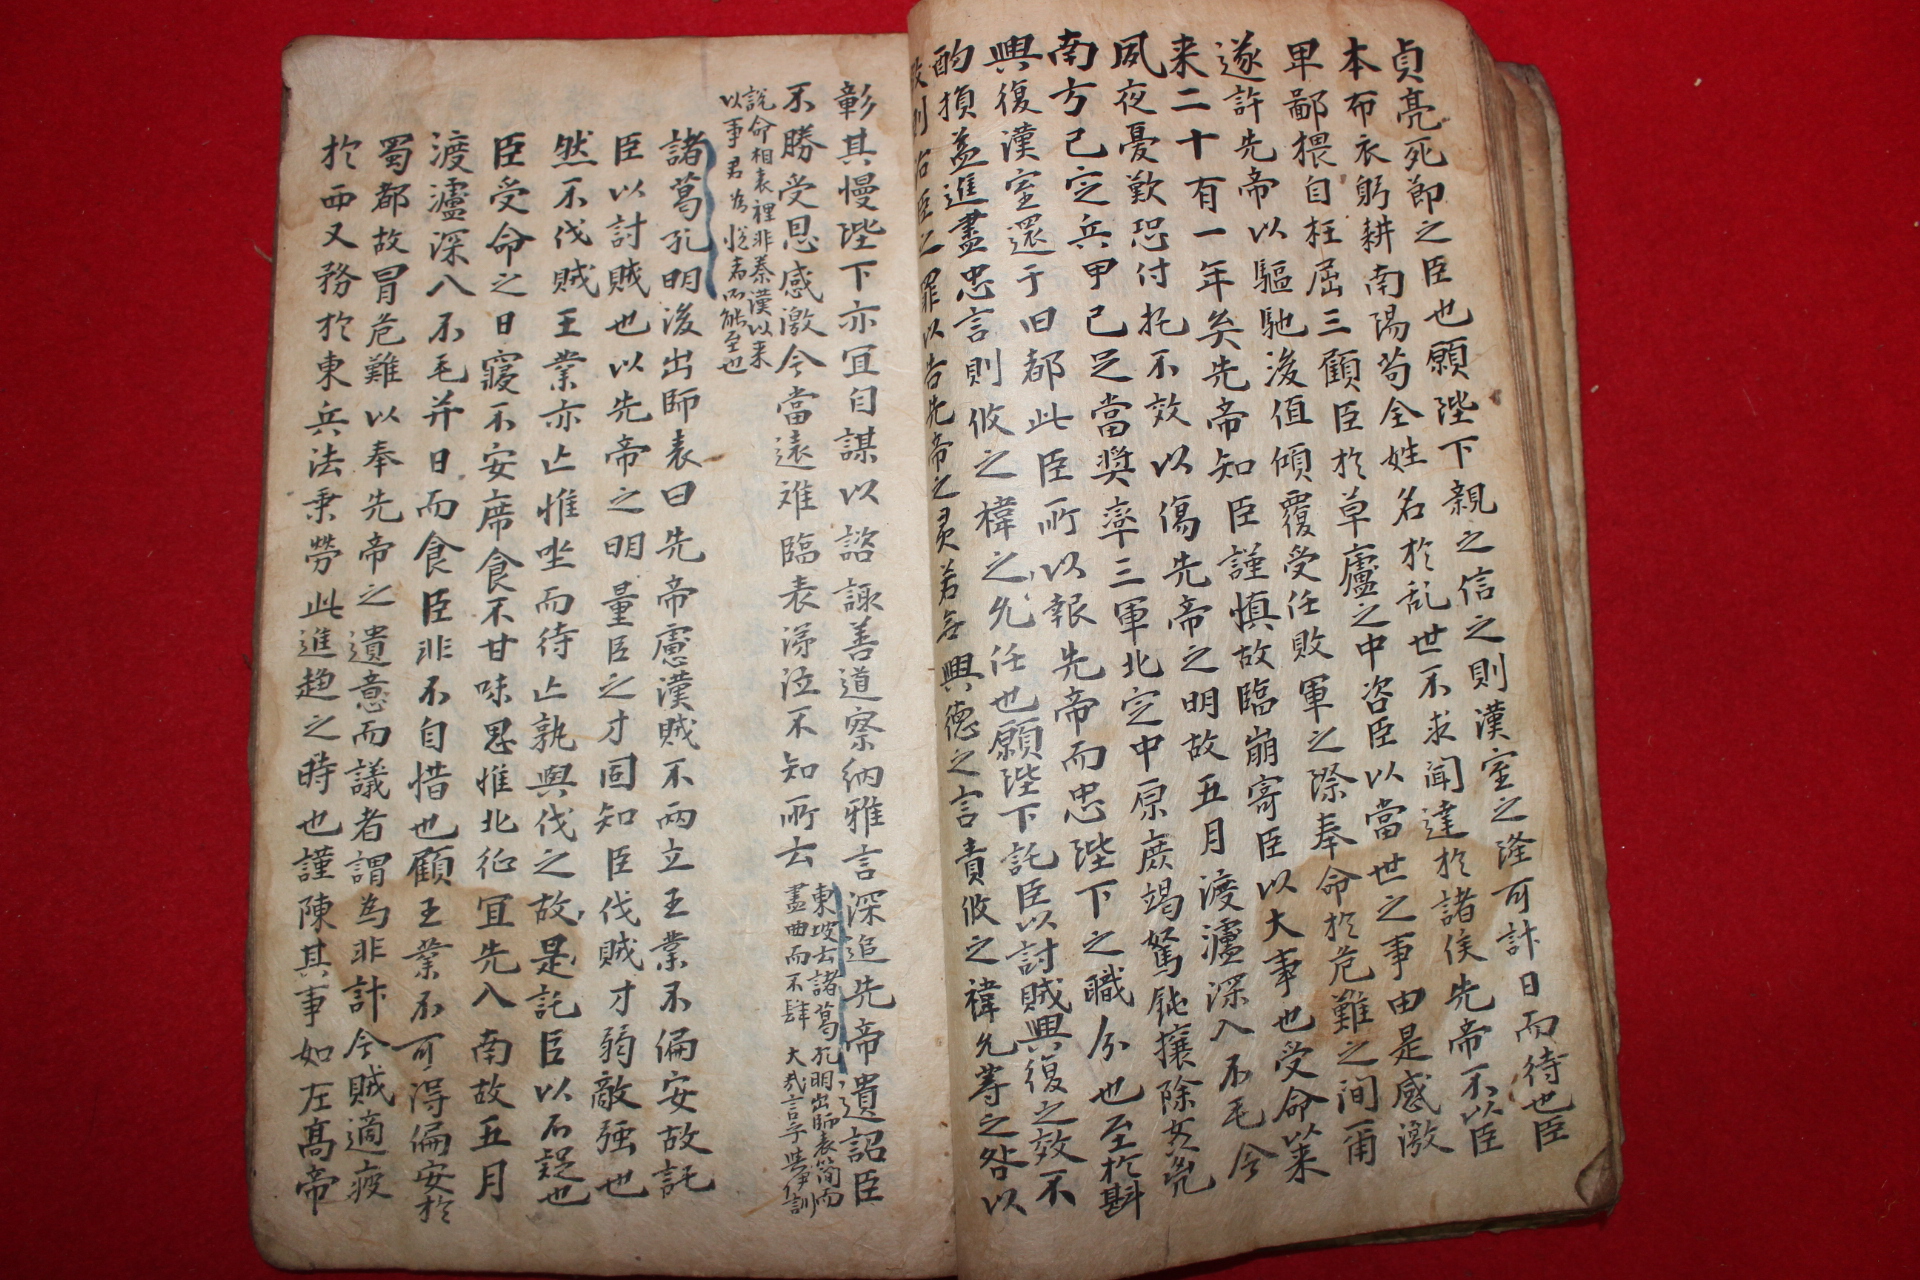 貞亮死節之臣也願陛下親之信之則漢室之隆可計日而待也臣
本布衣躬耕南陽苟全姓名於乱世不求聞達於諸侯先帝不以臣
卑鄙猥自枉屈三顧臣於草廬之中咨臣以當世之事由是感激
遂許先帝以驅馳後值傾覆受任敗軍之際奉命於危難之间甭
来二十有一年矣先帝知臣謹慎故臨崩寄臣以大事也受命以来
夙夜憂歎恐付托不效以傷先帝之明故五月渡瀘深入不毛今
南方已定兵甲已足當奬率三軍北定中原庶竭駑鈍攘除姦凶
興復漢室還于旧都此臣所以報先帝而忠陛下之職分也至於斟
酌損益進盡忠言則攸之褘之允任也願陛下託臣以討賊興復之效不
效則治臣之罪以告先帝之灵若無興德之言責攸之褘允等之咎以
彰其慢陛下亦宜自謀以諮諏善道察納雅言深追先帝遺詔臣
不勝受恩感激今當遠难臨表涕泣不知所去
東坡去諸葛孔明出師表简而
盡曲而不肆大哉言乎與伊訓
說命相表裡非秦漢以来
以事君為悅者而能至也
諸葛孔明後出師表曰先帝慮漢賊不兩立王業不偏安故託
臣以討賊也以先帝之明量臣之才固知臣伐賊才弱敵强也
然不伐賊王業亦亡惟坐而待亡孰與伐之故是託臣以不疑也
臣受命之日寢不安席食不甘味思惟北征宜先入南故五月
渡瀘深入不毛并日而食臣非不自惜也顧王業不可得偏安於
蜀都故冒危難以奉先帝之遺意而議者謂為非計今賊適疲
於西又務於東兵法乘勞此進趋之時也謹陳其事如左高帝